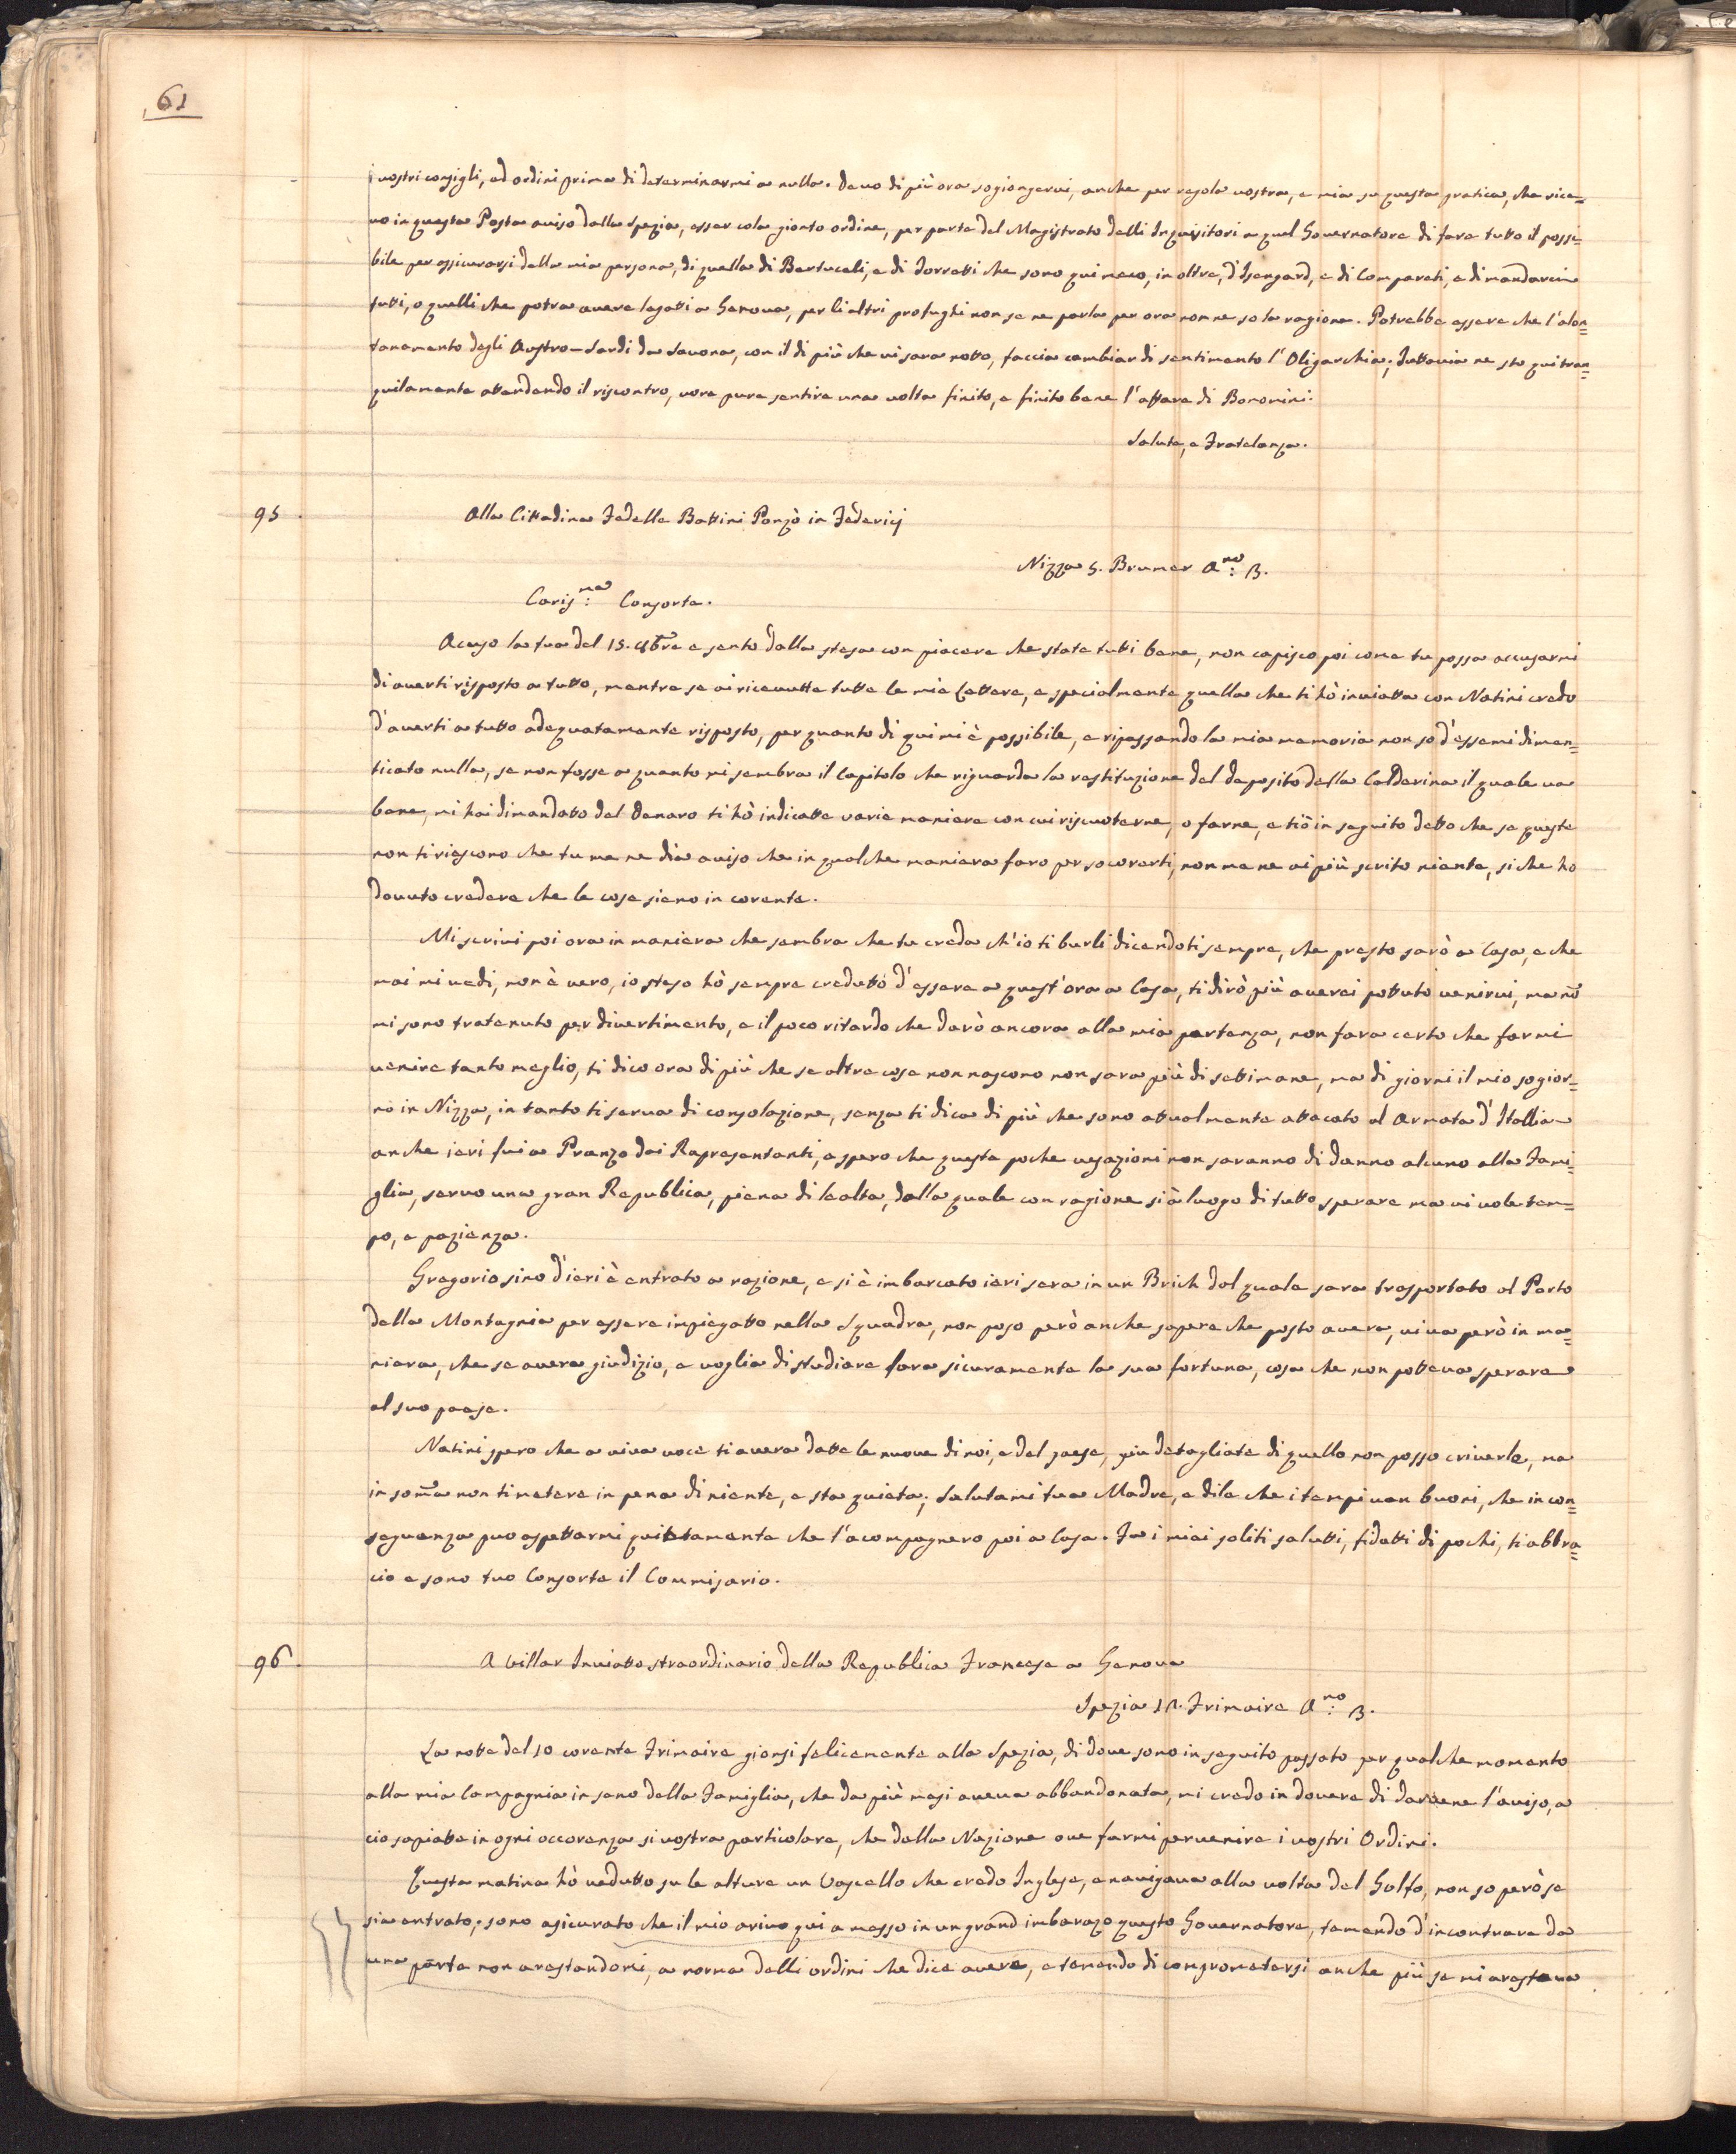 61
i vostri consigli, ed ordini prima di determinarmi a nulla. Devo di più ora sogiongervi, anche per regola vostra, e mia su questa pratica, che rice=
vo in questa Posta aviso dalla Spezia, esser cola gionto ordine, per parte del Magistrato delli Inquisitori a quel Governatore di fare tutto il possi=
bile per assicurarsi della mia persona, di quella di Bertuceli, e di Torretti che sono qui meco, in oltre, d'Isengard, e di Compareti, e di mandarcin
tutti, o quelli che potra avere legatti a Genova, per li altri profughi non se ne parla per ora non ne so la ragione. Potrebbe essere che l'alon=
tanamento degli Austro-Sardi da Savona, con il di più che vi sara notto, faccia cambiar di sentimento l'Oligarchia; tuttavia ne sto qui tran=
quilamente attendendo il riscontro, vore pure sentire una volta finito, e finito bene l'affare di Bonomini.
Salute, e Fratelanza.
95.
Alla Cittadina Fedelle Battini Ponzò in Federicj
Nizza 5. Brumer A.no 3.
Caris.ma Consorte.
Acuso la tua del 15. 8bre e sento dalla stesa con piacere che state tutti bene, non capisco poi come tu possa accusarmi
di averti risposto a tutto, mentre se ai ricevutte tutte le mie Lettere, e specialmente quella che ti hò inviatta con Natini credo
d'averti a tutto adeguatamente risposto, per quanto di qui mi è possibile, e ripassando la mia memoria non so d'essemi dimen=
ticato nulla, se non fosse a quanto mi sembra il Capitolo che riguarda la restituzione del deposito della Calderina il quale va
bene, mi hai dimandatto del denaro ti hò indicatte varie maniere con cui riscuoterne, o farne, e tiò in seguito detto che se queste
non ti riescono che tu me ne dia aviso che in qualche maniera faro per socorerti, non me ne ai più scrito niente, si che ho
dovuto credere che le cose sieno in corente.
Mi scrivi poi ora in maniera che sembra che tu creda ch'io ti burli dicendoti sempre, che presto sarò a Casa, e che
mai mi vedi, non è vero, io steso hò sempre credutto d'essere a quest'ora a Casa, ti dirò più averei pottuto venirvi, ma nō
mi sono tratenuto per divertimento, e il poco ritardo che darò ancora alla mia partenza, non fara certo che farmi
venire tanto meglio, ti dico ora di più che se altre cose non nascono non sara più di settimane, ma di giorni il mio sogior=
no in Nizza, in tanto ti serva di consolazione, senza ti dica di più che sono attualmente attacato al Armata d'Itallia
anche ieri fui a Pranzo dai Rapresentanti, e spero che queste poche vesazioni non saranno di danno alcuno alla Fami=
glia, servo una gran Republica, piena di lealta, dalla quale con ragione si à luogo di tutto sperare ma vi vole tem=
po, e pazienza.
Gregorio sino d'ieri è entrato a razione, e si è imbarcato ieri sera in un Brich dal quale sara trasportato al Porto
della Montagnia per essere impiegatto nella Squadra, non poso però anche sapere che posto avera, vi va però in ma=
niera, che se avera giudizio, e voglia di studiare fara sicuramente la sua fortuna, cosa che non potteva sperare
al suo paese.
Natini spero che a viva voce ti avera datte le nuove di noi, e del paese, più detagliate di quello non posso criverle, ma
in som̄a non ti metere in pena di niente, e sta quieta; Salutami tua Madre, e dile che i tempi van buoni, che in con=
seguenza puo aspettarmi quietamente che l'acompagnero poi a Casa. Fa i miei soliti salutti, fidatti di pochi, ti abbra=
cio e sono tuo Consorte il Commisario.
96.
A Villar Inviatto straordinario della Republica Francese a Genova
Spezia 12. Frimaire A.no 3.
La notte del 10 corente Frimaire gionsi felicemente alla Spezia, di dove sono in seguito passato per qualche momento
alla mia Campagnia in seno della Famiglia, che da più mesi aveva abbandonata, mi credo in dovere di darvene l'aviso, a
cio sapiatte in ogni occorenza si vostra particolare, che della Nazione ove farmi pervenire i vostri Ordini.
Questa matina hò vedutto su le alture un Vascello che credo Inglese, e navigava alla volta del Golfo, non so però se
sia entrato; sono asicurato che il mio arivo qui a messo in un grand imbarazo questo Governatore, temendo d'incontrare da
una parte non arestandomi, a norma delli ordini che dice avere, e temendo di comprometersi anche più se mi arestava